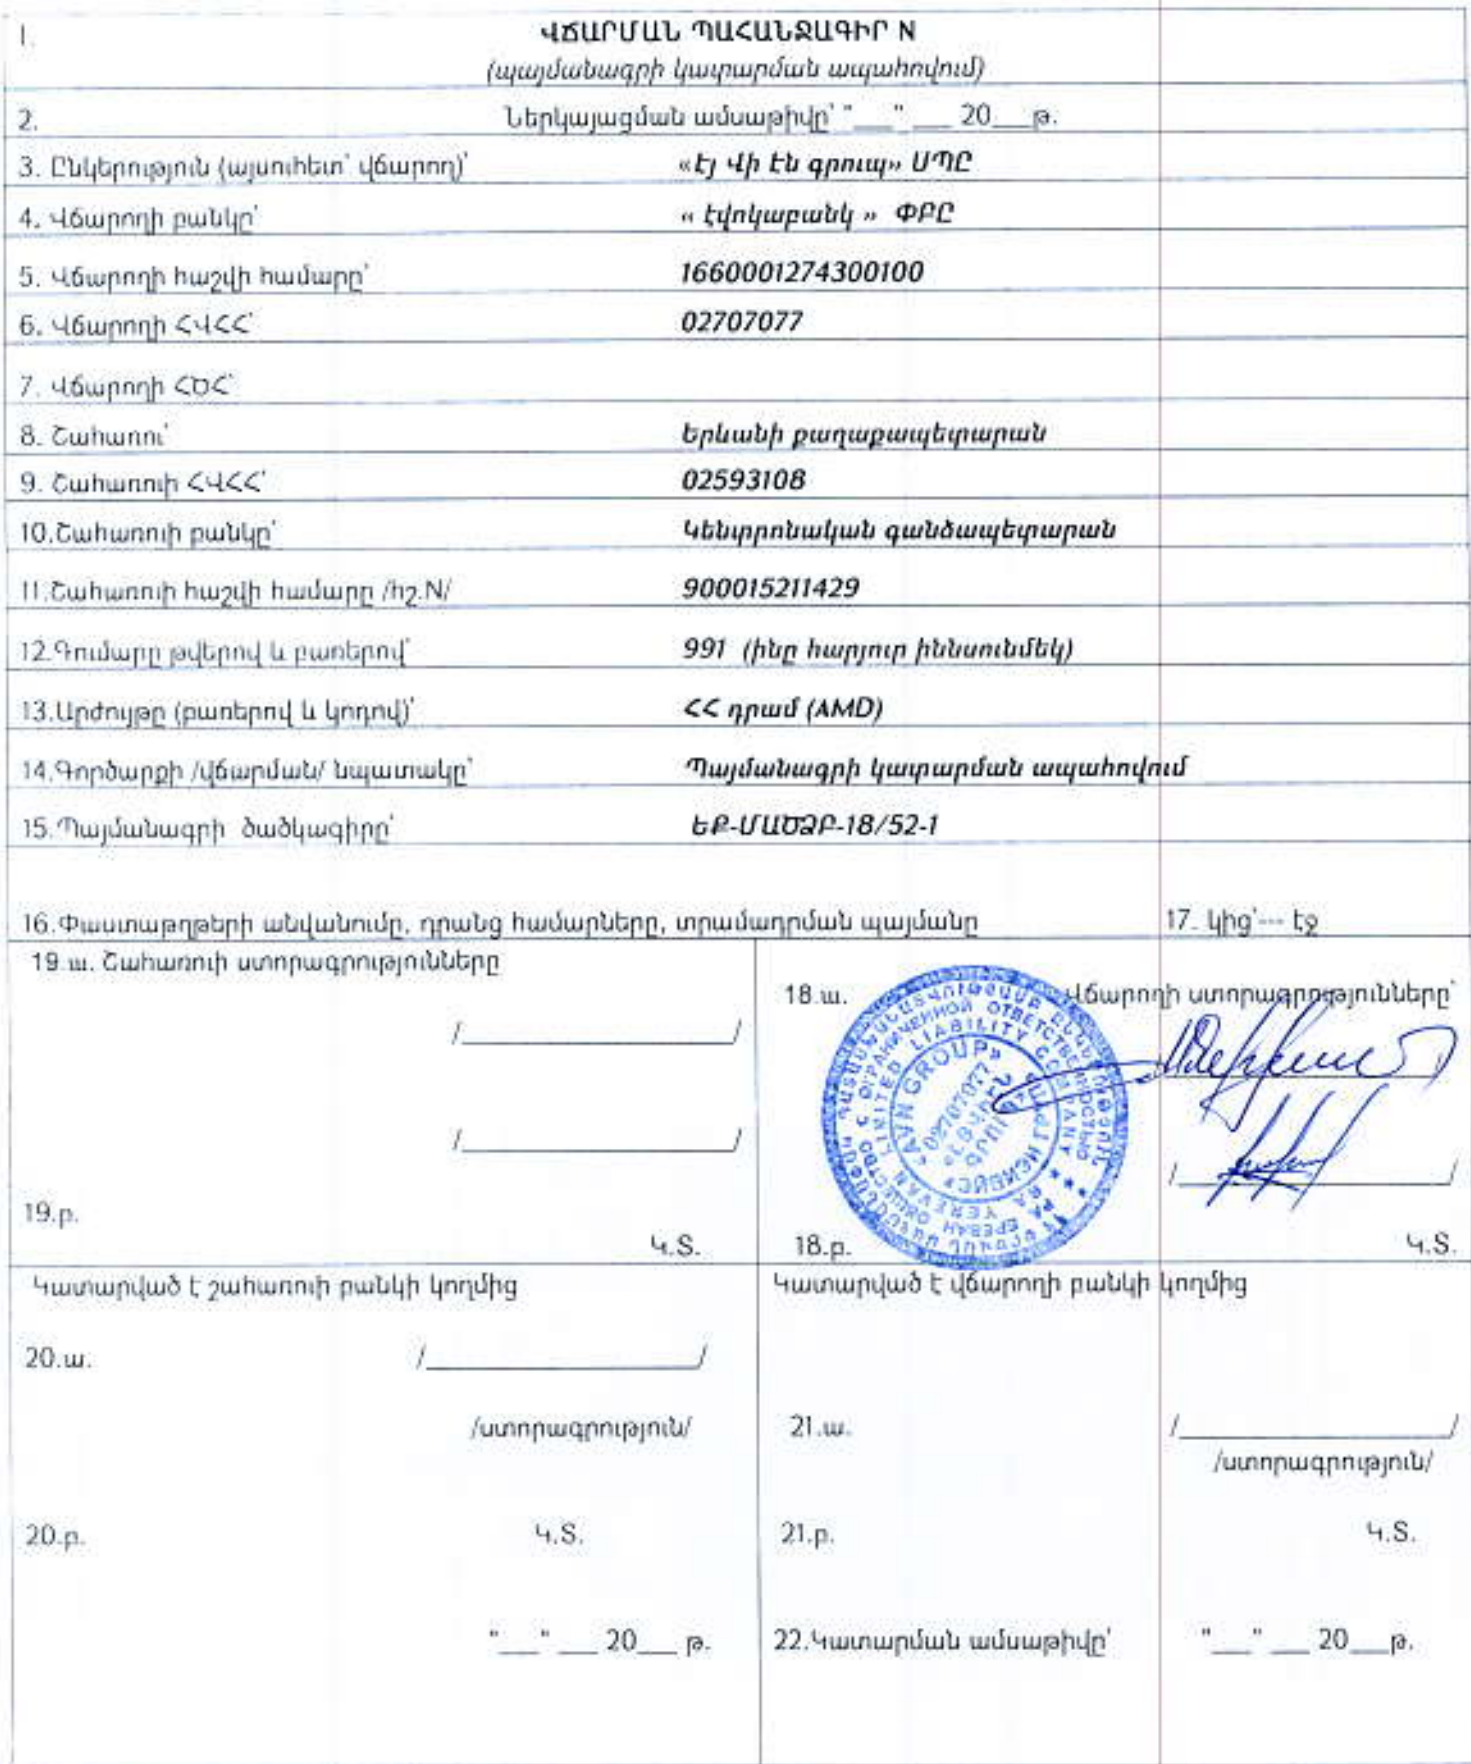 1. ՎՃԱՐՄԱՆ ՊԱՀԱՆՋԱԳԻՐ N
(պայմանագրի կատարման ապահովում)
2. Ներկայացման ամսաթիվը՝ "___" ___ 20___թ.
3. Ընկերություն (այսուհետ՝ վճարող)՝ «Էյ Վի Էն գրուպ» ՍՊԸ
4. Վճարողի բանկը՝ « Էվոկաբանկ » ՓԲԸ
5. Վճարողի հաշվի համարը՝ 1660001274300100
6. Վճարողի ՀՎՀՀ՝ 02707077
7. Վճարողի ՀԾՀ՝
8. Շահառու՝ Երևանի քաղաքապետարան
9. Շահառուի ՀՎՀՀ՝ 02593108
10.Շահառուի բանկը՝ Կենտրոնական գանձապետարան
11.Շահառուի հաշվի համարը /հշ.N/ 900015211429
12.Գումարը թվերով և բառերով՝ 991 (ինը հարյուր իննսունմեկ)
13.Արժույթը (բառերով և կոդով)՝ ՀՀ դրամ (AMD)
14.Գործարքի /վճարման/ նպատակը՝ Պայմանագրի կատարման ապահովում
15.Պայմանագրի ծածկագիրը՝ ԵՔ-ՄԱԾՁԲ-18/52-1
16.Փաստաթղթերի անվանումը, դրանց համարները, տրամադրման պայմանը 17. կից՝--- էջ
19.ա. Շահառուի ստորագրությունները
/_______________/
/_______________/
19.բ.
Կ.Տ.
18.ա. Վճարողի ստորագրությունները՝
ОБЩЕСТВО С ОГРАНИЧЕННОЙ ОТВЕТСТВЕННОСТЬЮ
LIMITED LIABILITY COMPANY
«AVN GROUP»
02707077
YEREVAN RA
ЕРЕВАН РА
/_______________/
18.բ. Կ.Տ.
Կատարված է շահառուի բանկի կողմից
20.ա. /_______________/
/ստորագրություն/
20.բ. Կ.Տ.
"___" ___ 20___ թ.
Կատարված է վճարողի բանկի կողմից
21.ա. /_______________/
/ստորագրություն/
21.բ. Կ.Տ.
22.Կատարման ամսաթիվը՝ "___" ___ 20___թ.